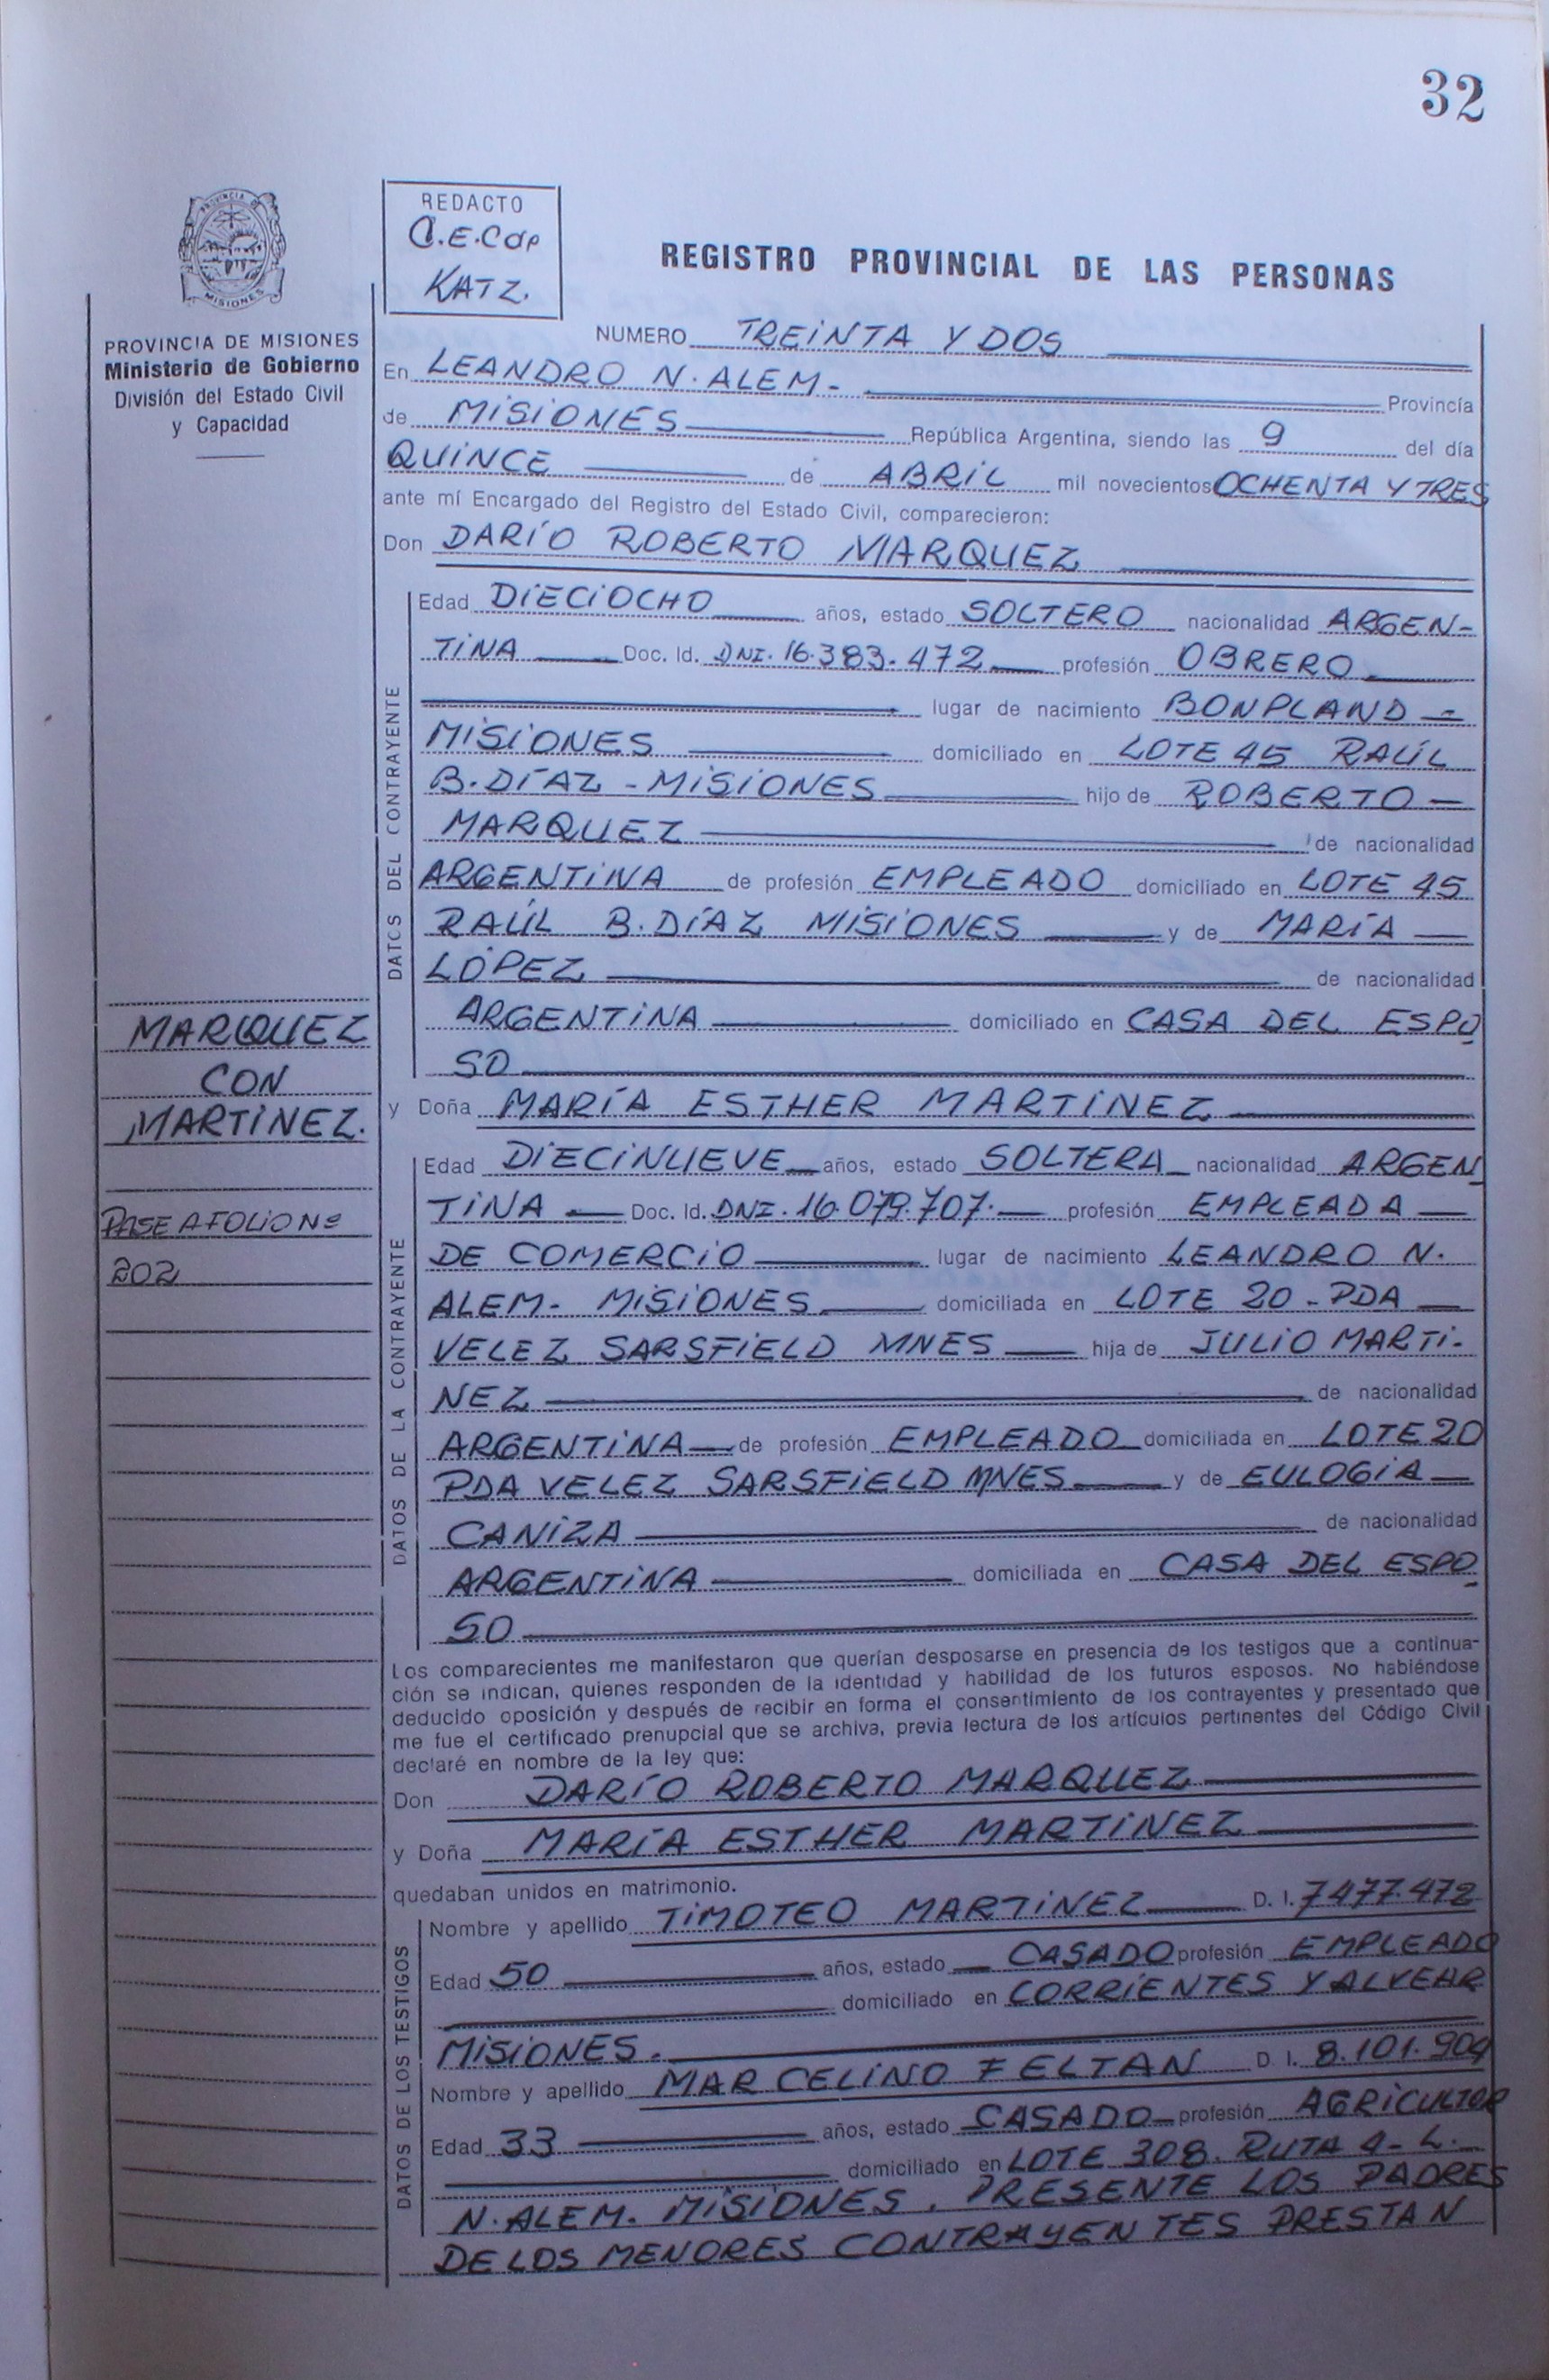 32
PROVINCIA DE
MISIONES
PROVINCIA DE MISIONES
Ministerio de Gobierno
División del Estado Civil
y Capacidad
REDACTO
C.E.Cap
KATZ.
REGISTRO PROVINCIAL DE LAS PERSONAS
NUMERO TREINTA Y DOS
En LEANDRO N. ALEM - Provincia
de MISIONES República Argentina, siendo las 9 del día
QUINCE de ABRIL mil novecientos OCHENTA Y TRES
ante mí Encargado del Registro del Estado Civil, comparecieron:
Don DARÍO ROBERTO MARQUEZ
DATOS DEL CONTRAYENTE
Edad DIECIOCHO años, estado SOLTERO nacionalidad ARGEN-
TINA Doc. Id. DNI. 16.383.472 profesión OBRERO
lugar de nacimiento BONPLAND -
MISIONES domiciliado en LOTE 45 RAÚL
B. DÍAZ - MISIONES hijo de ROBERTO
MARQUEZ de nacionalidad
ARGENTINA de profesión EMPLEADO domiciliado en LOTE 45
RAÚL B. DÍAZ MISIONES y de MARÍA
LÓPEZ de nacionalidad
ARGENTINA domiciliado en CASA DEL ESPO
SO
MARQUEZ
CON
MARTINEZ.
y Doña MARÍA ESTHER MARTINEZ
PASE A FOLIO Nº
202
DATOS DE LA CONTRAYENTE
Edad DIECINUEVE años, estado SOLTERA nacionalidad ARGEN
TINA Doc. Id. DNI. 16.079.707. profesión EMPLEADA
DE COMERCIO lugar de nacimiento LEANDRO N.
ALEM - MISIONES domiciliada en LOTE 20 - PDA
VELEZ SARSFIELD MNES hija de JULIO MARTI-
NEZ de nacionalidad
ARGENTINA de profesión EMPLEADO domiciliada en LOTE 20
PDA VELEZ SARSFIELD MNES y de EULOGIA
CANIZA de nacionalidad
ARGENTINA domiciliada en CASA DEL ESPO
SO
Los comparecientes me manifestaron que querían desposarse en presencia de los testigos que a continua-
ción se indican, quienes responden de la identidad y habilidad de los futuros esposos. No habiéndose
deducido oposición y después de recibir en forma el consentimiento de los contrayentes y presentado que
me fue el certificado prenupcial que se archiva, previa lectura de los artículos pertinentes del Código Civil
declaré en nombre de la ley que:
Don DARÍO ROBERTO MARQUEZ
y Doña MARÍA ESTHER MARTINEZ
quedaban unidos en matrimonio.
DATOS DE LOS TESTIGOS
Nombre y apellido TIMOTEO MARTINEZ D. I. 7477.472
Edad 50 años, estado CASADO profesión EMPLEADO
domiciliado en CORRIENTES Y ALVEAR
MISIONES.
Nombre y apellido MARCELINO FELTAN D. I. 8.101.904
Edad 33 años, estado CASADO profesión AGRICULTOR
domiciliado en LOTE 308. RUTA 4 - L.
N. ALEM. MISIONES. PRESENTE LOS PADRES
DE LOS MENORES CONTRAYENTES PRESTAN